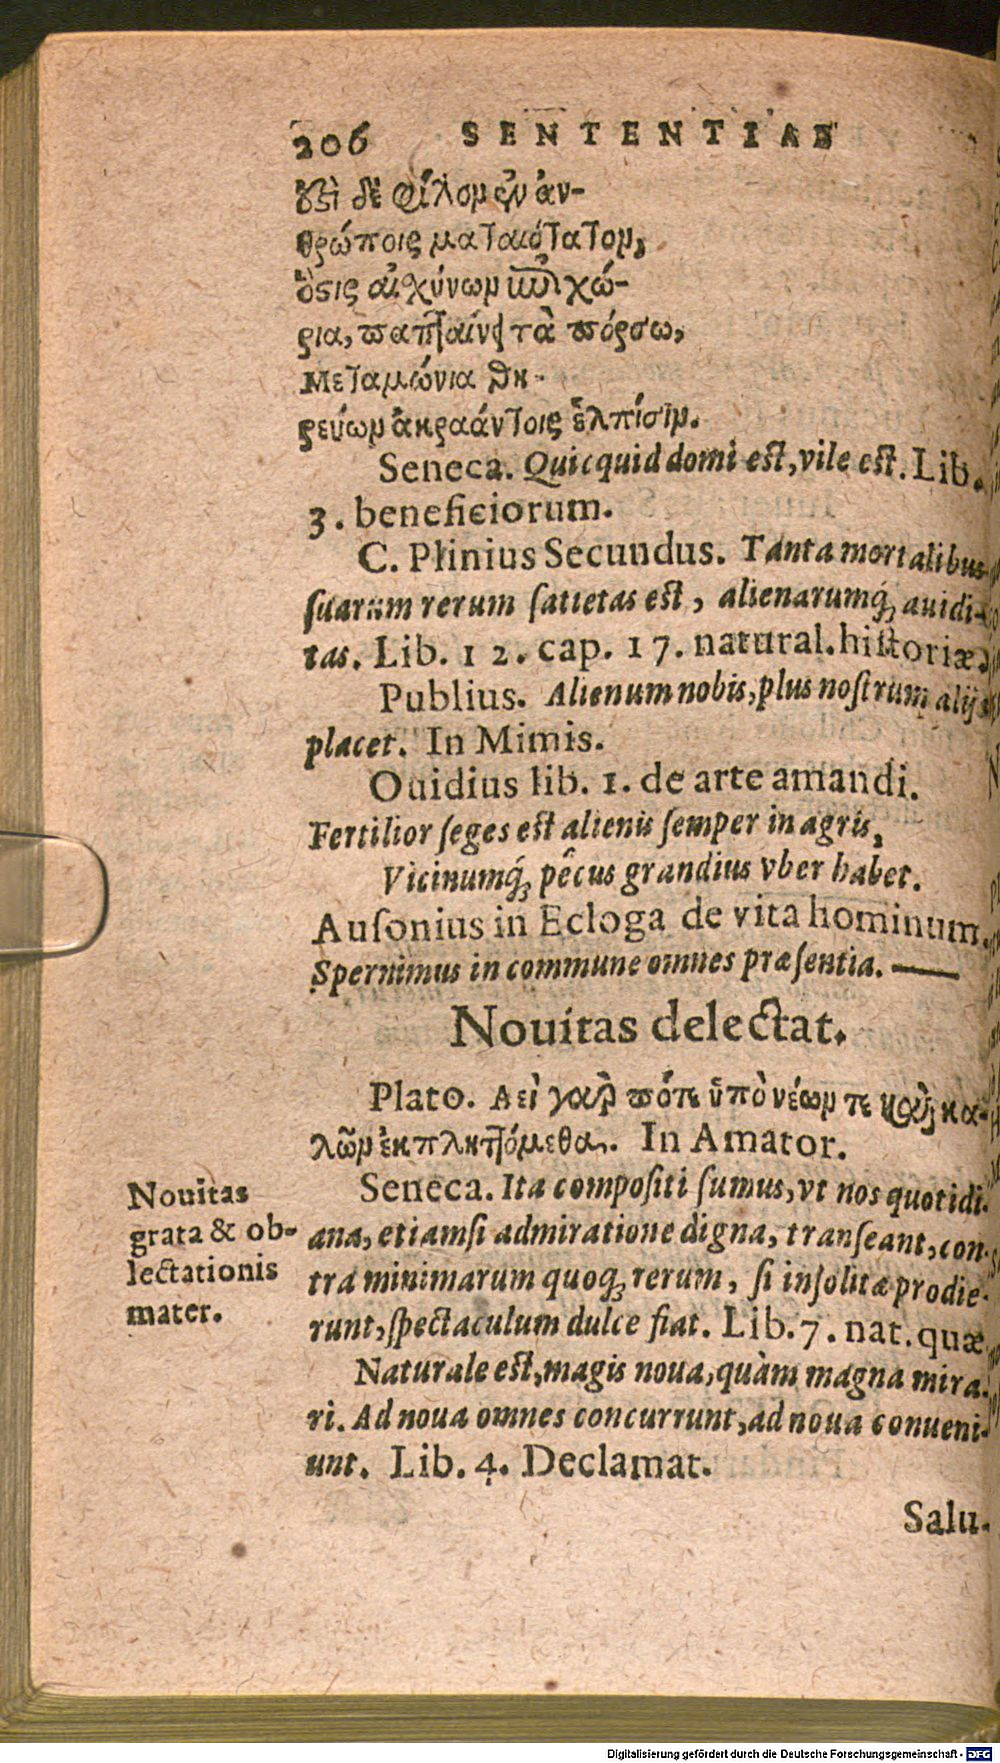 206 SENTENTIAE
ἔστι δὲ φῦλον ἐν ἀν-
θρώποις ματαιότατον,
ὅστις αἰσχύνων ἐπιχώ-
ρια, παπταίνει τὰ πόρσω,
Μεταμώνια θη-
ρεύων ἀκραάντοις ἐλπίσιν.
Seneca. Quicquid domi est, vile est. Lib.
3. beneficiorum.
C. Plinius Secundus. Tanta mortalibus
suarum rerum satietas est, alienarumq́; auidi-
tas. Lib. 12. cap. 17. natural. historiæ.
Publius. Alienum nobis, plus nostrum alijs
placet. In Mimis.
Ouidius lib. 1. de arte amandi.
Fertilior seges est alienis semper in agris,
Vicinumq́; pecus grandius vber habet.
Ausonius in Ecloga de vita hominum.
Spernimus in commune omnes præsentia. —
Nouitas delectat.
Plato. Ἀεὶ γάρ ποτε ὑπὸ νέων τε καὶ κα-
λῶν ἐκπληττόμεθα. In Amator.
Nouitas
grata & ob-
lectationis
mater.
Seneca. Ita compositi sumus, vt nos quotidi-
ana, etiamsi admiratione digna, transeant, con-
tra minimarum quoq; rerum, si insolitæ prodie-
runt, spectaculum dulce fiat. Lib. 7. nat. quæ.
Naturale est, magis noua, quàm magna mira-
ri. Ad noua omnes concurrunt, ad noua conueni-
unt. Lib. 4. Declamat.
Salu-
Digitalisierung gefördert durch die Deutsche Forschungsgemeinschaft - DFG